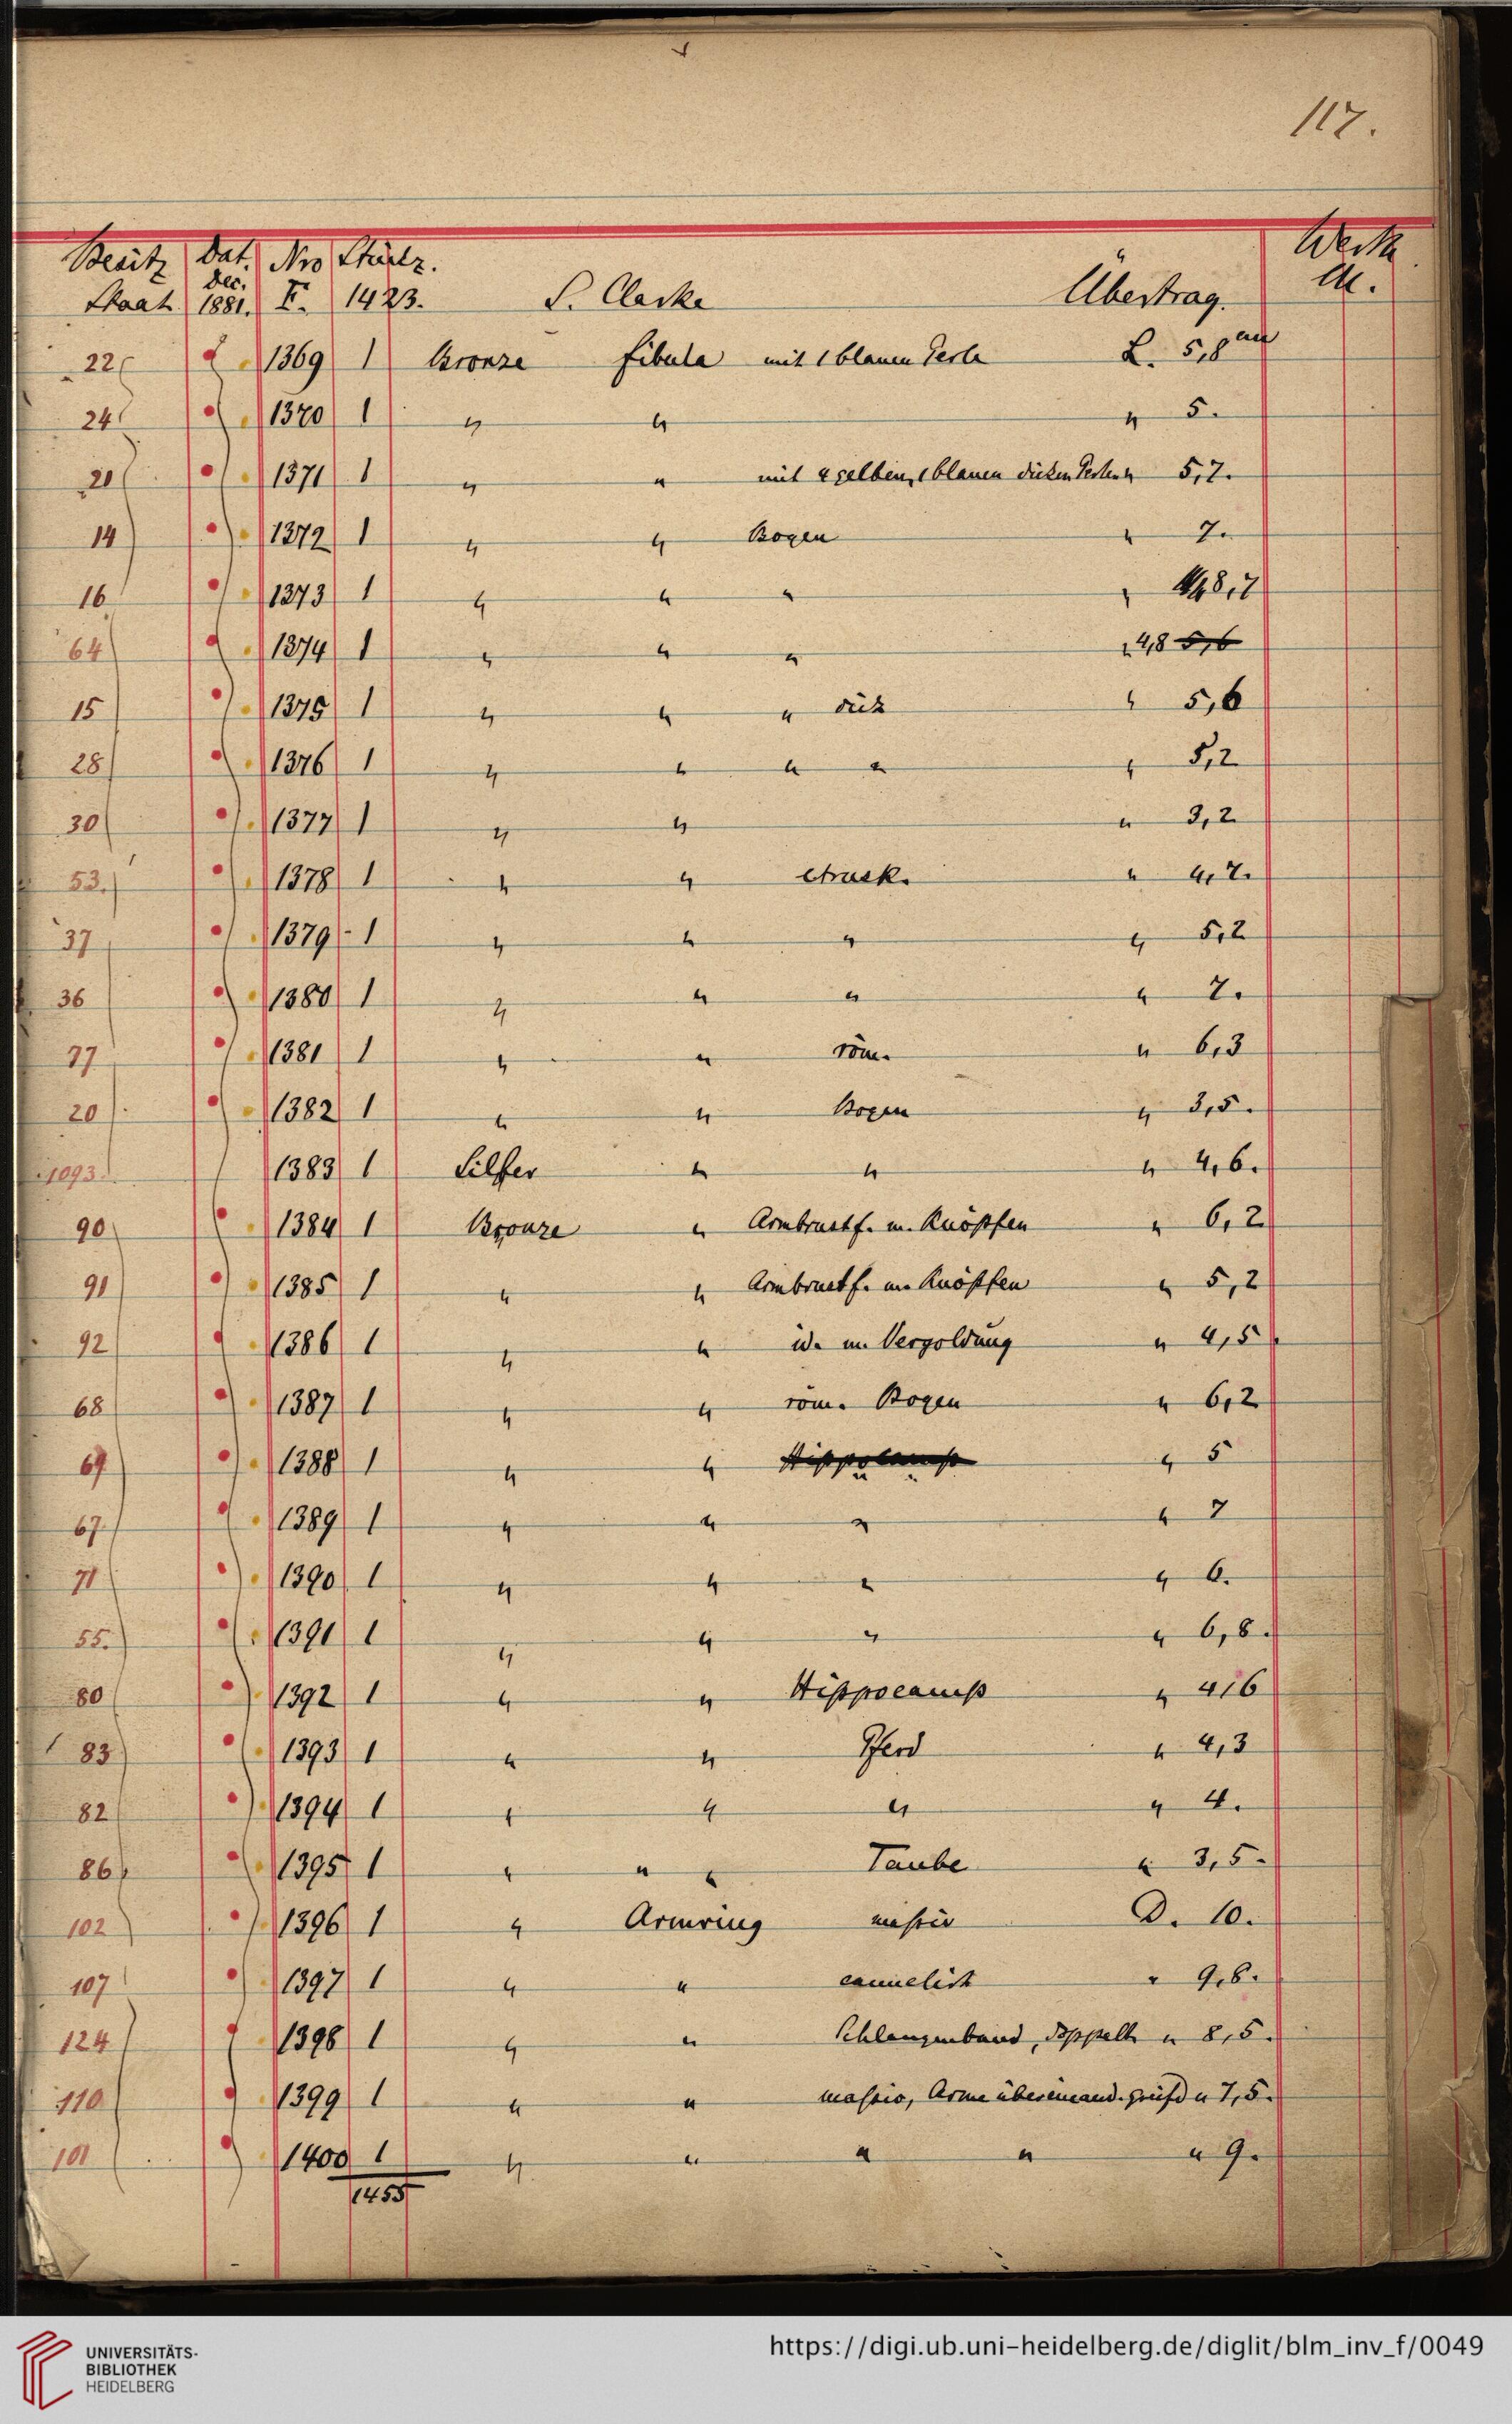 117.
Besitz Dat. Nro Stückz. Werth
Staat Dec. 1881. F. 1423. S. Clarke Übertrag. M.
22 1369 1 Bronze Fibula mit 1 blauen Perle L. 5,8 cm
24 1370 1 " " " 5.
21 1371 1 " " mit 4 gelben, 1 blauen dicken Perlen " 5,7.
14 1372 1 " " Bogen " 7.
16 1373 1 " " " " 8,7
64 1374 1 " " " " 4,8 5,6
15 1375 1 " " " dick " 5,6
28 1376 1 " " " " " 5,2
30 1377 1 " " " 3,2
53. 1378 1 " " etrusk. " 4,7.
37 1379 - 1 " " " " 5,2
36 1380 1 " " " " 7.
77 1381 1 " " röm. " 6,3
20 1382 1 " " Bogen " 3,5.
1093. 1383 1 Silber " " " 4,6.
90 1384 1 Bronze " Armbrustf. m. Knöpfen " 6,2
91 1385 1 " " Armbrustf. m. Knöpfen " 5,2
92 1386 1 " " id. m. Vergoldung " 4,5
68 1387 1 " " röm. Bogen " 6,2
69 1388 1 " " Hippocamp " 5
67 1389 1 " " " " 7
71 1390 1 " " " " 6.
55. 1391 1 " " " " 6,8.
80 1392 1 " " Hippocamp " 4,6
83 1393 1 " " Pferd " 4,3
82 1394 1 " " " " 4.
86 1395 1 " " " Taube " 3,5.
102 1396 1 " Armring massiv D. 10.
107 1397 1 " " cannelirt " 9,8.
124 1398 1 " " Schlangenband, doppelt " 8,5.
110 1399 1 " " massiv, Arme übereinand. greifd " 7,5.
101 1400 1 " " " " " 9.
1455
UNIVERSITÄTS-
BIBLIOTHEK
HEIDELBERG
https://digi.ub.uni-heidelberg.de/diglit/blm_inv_f/0049